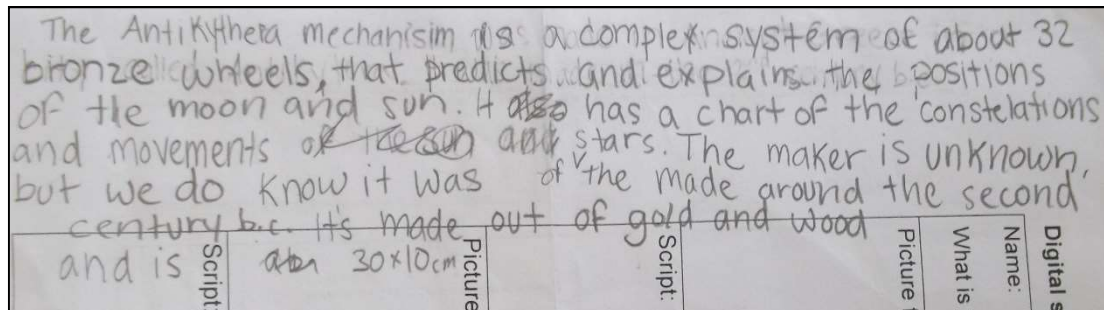 The Antikythera mechanisim is a complex system of about 32
bronze wheels, that predicts and explains the positions
of the moon and sun. It also has a chart of the constelations
and movements of the sun and stars. The maker is unknown,
but we do know it was of the made around the second
century b.c. It's made out of gold and wood
and is 30x10cm
Script:
Picture
Script:
Picture
What is
Name:
Digital s